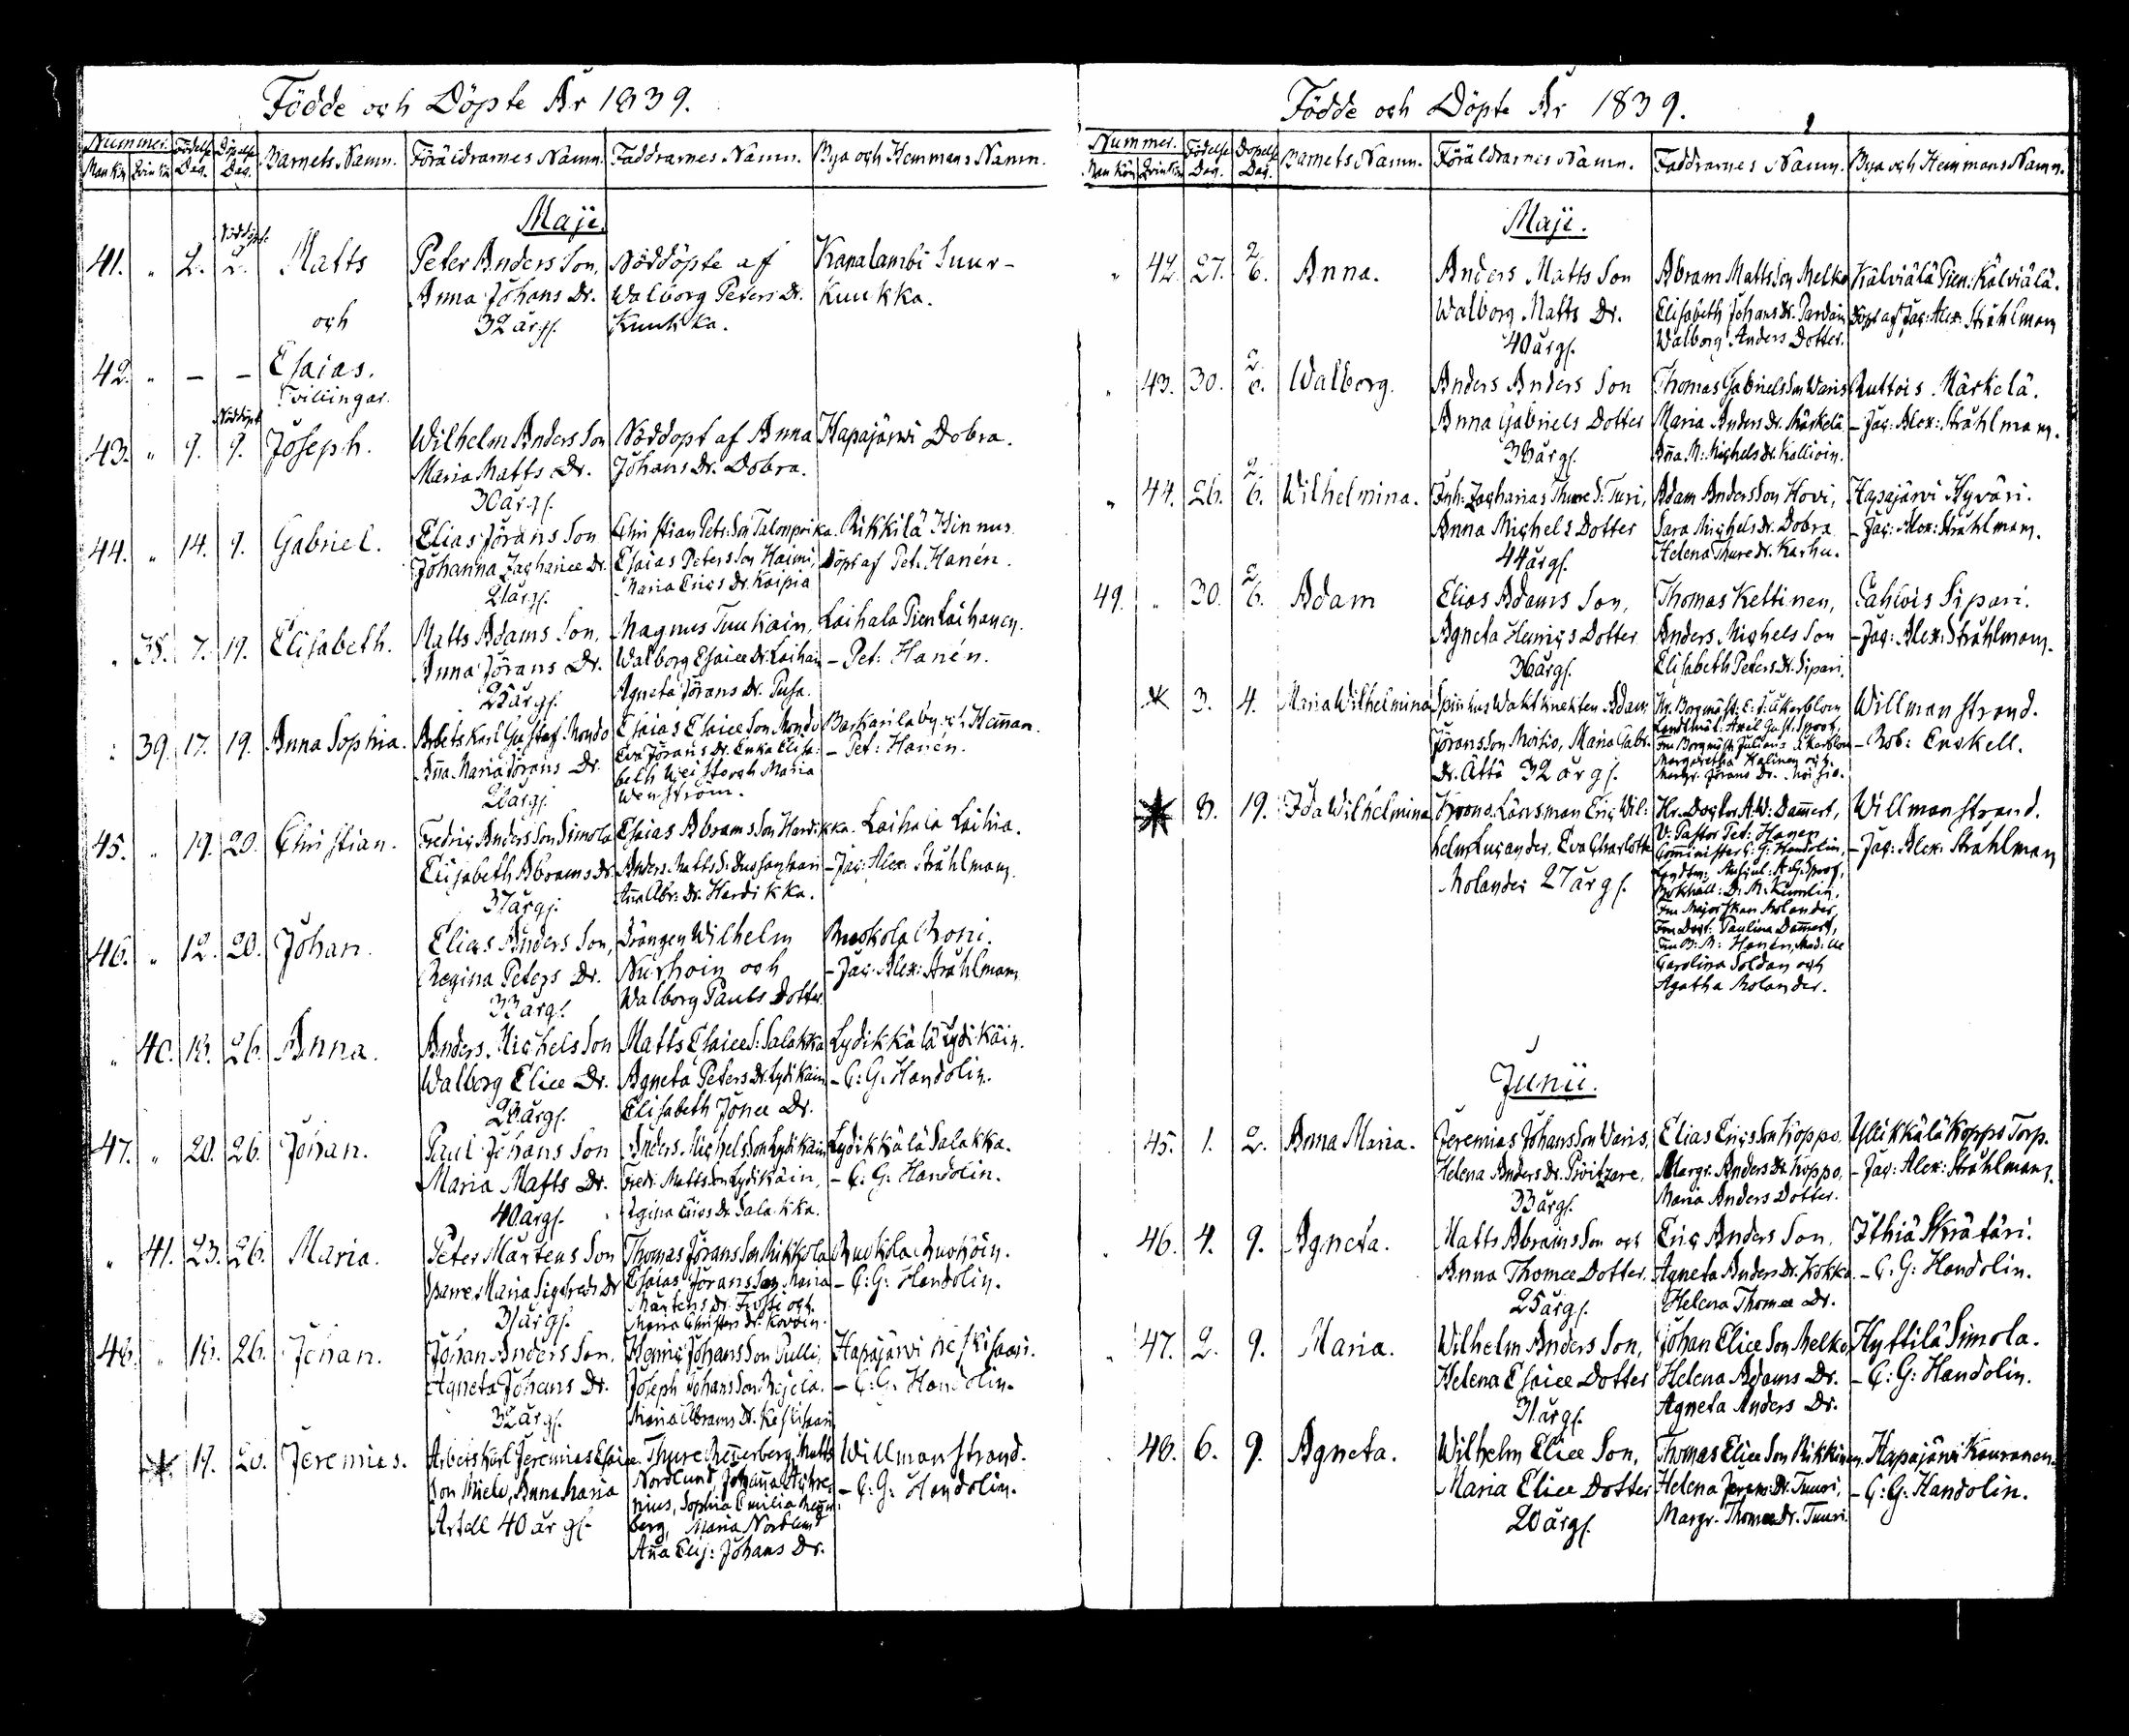 Födde och Döpte År 1839.
Nummer. Födelse Döpelse Barnets Namn. Föräldrarnes Namn. Faddrarnes Namn. Bya och Hemmans Namn.
Man Kön Qvin Kön Dag. Dag.
Maji.
Nöddöpt.
41. " 2. 2. Matts Peter Anders Son, Nöddöpte af Kanalambi Suur-
Anna Johans Dr. Walborg Peters Dr. Kuukka.
och 32 år gl. Kuukka.
42. " — — Esaias.
Tvillingar.
Nöddöpt
43. " 9. 9. Joseph. Wilhelm Anders Son Nöddöpt af Anna Hapajärwi Dobra.
Maria Matts Dr. Johans Dr. Dobra.
30 år gl.
44. " 14. 9. Gabriel. Elias Jörans Son Christian Pets: Son Talonpoika. Rikkilä Hinnus.
Johanna Zachariæ Dr. Esaias Peters Son Haimi, Döpt af Pet. Hanén.
21 år gl. Maria Erics Dr. Kaipia
" 38. 7. 19. Elisabeth. Matts Adams Son, Magnus Tuukain, Laihala Pien Laihanen.
Anna Jörans Dr. Walborg Esaiæ Dr. Laihain — Pet: Hanén.
25 år gl. Agneta Jörans Dr. Pusa.
: 39. 17. 19. Anna Sophia. Arbets Karl Gustaf Mondo Esaias Esaiæ Son Mondo Barkarila by och Hemman.
Anna Maria Jörans Dr. Eva Jörans Dr. Enka Elisa- — Pet: Hanén.
28 år gl. beth och Maria
Wenström.
45. " 19. 20. Christian. Fredric Anders Son Simola Esaias Abrams Son Hardikka. Laihala Laihia.
Elisabeth Abrams Dr. Anders Matts S: — Jac: Alex: Stråhlman.
37 år gl. Anna Abr: Dr. Hardikka.
46. " 12. 20. Johan. Elias Anders Son, Drängen Wilhelm Ruokola Roni.
Regina Peters Dr. Nurhoin och — Jac: Alex: Stråhlman
33 år gl. Walborg Pauls Dotter.
" 40. 18. 26. Anna. Anders Michels Son Matts Esaiæ S: Salakka Lydikkälä Lydikäin.
Walborg Eliæ Dr. Agneta Peters Dr. Lydikäin — C: G: Handolin.
28 år gl. Elisabeth Jonæ Dr.
47. " 20. 26. Johan. Paul Johans Son Anders Michels Son Lydikäin Lydikkälä Salakka.
Maria Matts Dr. Fredr: Matts Son Lydikäin, — C: G: Handolin.
40 år gl. Regina Erics Dr. Salakka.
" 41. 23. 26. Maria. Peter Mårtens Son Thomas Jörans Son Rikkola Ruokola Ruokoin.
Maria Sigfreds Dr Esaias Jörans Son, Maria — C: G: Handolin.
31 år gl. Mårtens Dr. Frosti och
Maria Christers Dr. Kovoin.
48. " 18. 26. Johan. Johan Anders Son, Henric Johans Son Pulli, Hapajärwi Keskisaari.
Agneta Johans Dr. Joseph Johans Son — C: G: Handolin.
32 år gl. Maria Abrams Dr. Keskisaari
19. 20. Jeremias. Arbets Karl Jeremias Esaiæ Thure Rennerberg, Matts Willmanstrand.
Son Miele, Anna Maria Nordlund, Johanna — C: G: Handolin.
Artell 40 år gl. nius, Sophia Emilia Renner-
berg, Maria Nordlund
Anna Elis: Johans Dr.
Födde och Döpte År 1839.
Nummer. Födelse Döpelse Barnets Namn. Föräldrarnes Namn. Faddrarnes Namn. Bya och Hemmans Namn.
Man Kön Qvin Kön Dag. Dag.
Maji.
" 42. 27. 2/6. Anna. Anders Matts Son Abram Matts Son Melko Kälviälä Pien: Kälviälä.
Walborg Matts Dr. Elisabeth Johans Dr. Pardain Döpt af Jac: Alex: Stråhlman
40 år gl. Walborg Anders Dotter.
" 43. 30. 2/6. Walborg. Anders Anders Son Thomas Gabriels Son Waris Ruttois Märkelä.
Anna Gabriels Dotter Maria Anders Dr. Märkelä — Jac: Alex: Stråhlman.
38 år gl. Anna M: Michels Dr. Kallioin.
" 44. 26. 2/6. Wilhelmina. Inh: Zacharias Thure S: Turi, Adam Anders Son Hovi, Hapajärvi Hyväri.
Anna Michels Dotter Sara Michels Dr. Dobra — Jac: Alex: Stråhlman.
44 år gl. Helena Thure Dr. Karhu.
49. " 30. 2/6. Adam Elias Adams Son, Thomas Kettinen, Sipari.
Agneta Henrics Dotter Anders Michels Son — Jac: Alex: Stråhlman.
36 år gl. Elisabeth Peters Dr. Sipari.
3. 4. Maria Wilhelmina Spinhus Wakt Knekten Adam Hr. Borgmäst: E: J: Åkerblom Willmanstrand.
Jörans Son Moisio, Maria Gabr: Landtmät: Axel Gust: Sproof, — Rob: Enskell.
Dr. Ättö 32 år gl. Fru Borgmäst: Juliana Åkerblom
Margaretha Kalinen och
Margr. Jörans Dr. Moisio.
8. 19. Ida Wilhelmina Krono Länsman Eric Wil- Hr. Doctor A: W: Dammert, Willmanstrand.
helm Lucander, Eva Charlotta V: Pastor Pet: Hanen — Jac: Alex: Stråhlman
Molander 27 år gl. Comminister C: G: Handolin,
Landtm: Auscul: A: G: Sproof,
Bokhåll: D: M: Kumlin,
Fru Majorskan Molander,
Fru Doct: Paulina Dammert,
Fru Hanén, Mad:lle
Carolina Soldan och
Agatha Molander.
Junii.
45. 1. 2. Anna Maria. Jeremias Johans Son Waris, Elias Erics Son Koppo, Yllikkälä Koppo Torp.
Helena Anders Dr. Margr. Anders Dr. Koppo, — Jac: Alex: Stråhlman.
33 år gl. Maria Anders Dotter.
" 46. 4. 9. Agneta. Matts Abrams Son och Eric Anders Son, Ithiä Skräteri.
Anna Thomæ Dotter. Agneta Anders Dr. Kokko — C: G: Handolin.
25 år gl. Helena Thomæ Dr.
" 47. 2. 9. Maria. Wilhelm Anders Son, Johan Eliæ Son Melko, Hyttilä Simola.
Helena Esaiæ Dotter Helena Adams Dr. — C: G: Handolin.
31 år gl. Agneta Anders Dr.
48. 6. 9. Agneta. Wilhelm Eliæ Son, Thomas Eliæ Son Rikkinen, Hapajärwi Kauranen.
Maria Eliæ Dotter Helena Jerem: Dr. Tuuri, — C: G: Handolin.
20 år gl. Margr. Thomæ Dr. Tuuri.